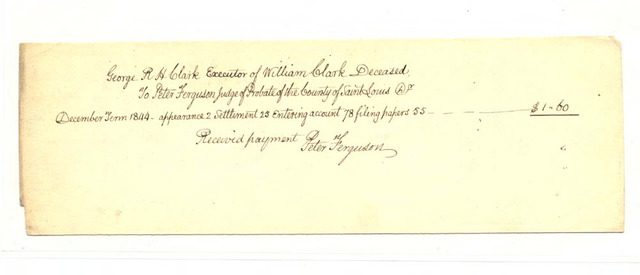 George R H Clark Executor of William Clark Deceased,
To Peter Ferguson Judge of Probate of the County of Saint Louis Dr
December Term 1844 - appearance 2 Settlement 25 Entering account 78 filing papers 55 - - - $1-60
Received payment Peter Ferguson